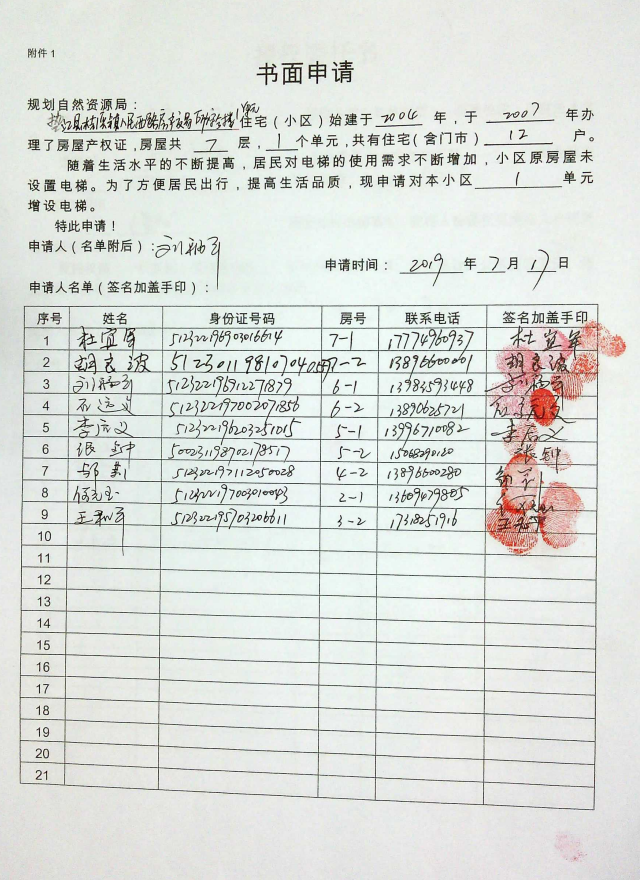 附件1
书面申请
规划自然资源局：
住宅（小区）始建于 2004 年，于 2007 年办
理了房屋产权证，房屋共 7 层，1 个单元，共有住宅（含门市） 12 户。
随着生活水平的不断提高，居民对电梯的使用需求不断增加，小区原房屋未
设置电梯。为了方便居民出行，提高生活品质，现申请对本小区 1 单元
增设电梯。
特此申请！
申请人（名单附后）：
申请时间： 2019 年 7 月 17 日
申请人名单（签名加盖手印）：
序号 姓名 身份证号码 房号 联系电话 签名加盖手印
1 杜宜军 512322196903016614 7-1 17774960937 杜宜军
2 胡良波 7-2 13896600001 胡良波
3 512322196912271879 6-1 13983593448
4 石远义 512322197002071856 6-2 13890625721
5 李应义 512322196203251015 5-1 13996710082
6 张钟 500231198702178517 5-2 15068290120 张钟
7 512322197112050028 4-2 13896600280
8 512322197003010043 2-1 13609479805
9 512322195703206611 3-2 17318251916
10
11
12
13
14
15
16
17
18
19
20
21